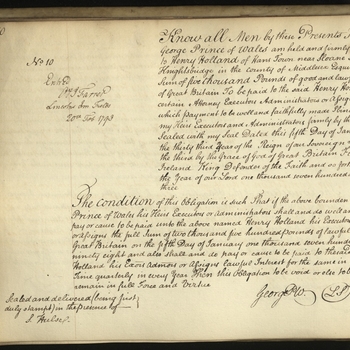 No 10
Entd
Farrer
Lincolns Inn Fields
20th Feb 1793
Know all Men by these Presents
George Prince of Wales am held and firmly
to Henry Holland of Hans Town near Sloane
in the county of Middlesex Esquire
Sum of five thousand Pounds of good and law
of Great Britain To be paid to the said Henry Ho
certain Attorney Executors Administrators or Assigns
which payment to be well and faithfully made
my Heirs Executors and Administrators firmly by th
Sealed with my Seal Dated this fifth Day of Jan
the thirty third Year of the Reign of our Sovereign
the third by the Grace of God of Great Britain Fr
Ireland King Defender of the Faith and so fort
the Year of our Lord one thousand seven hundred
three
The condition of this obligation is such That if the above bounden
Prince of Wales his Heirs Executors or Administrators shall and do well an
pay or cause to be paid unto the above named Henry Holland his Executors
or Assigns the full Sum of two thousand five hundred pounds of lawful
Great Britain on the fifth Day of January one thousand seven hund
ninety eight and also shall and do pay or cause to be paid to the said
Holland his Exors Admors or Assigns lawful Interest for the same in
Time quarterly in every Year Then this Obligation to be void or else to be
remain in full Force and Virtue
Sealed and delivered (being first
duly stampt) in the presence of
George P. W. (L.S.)
J. Hulse